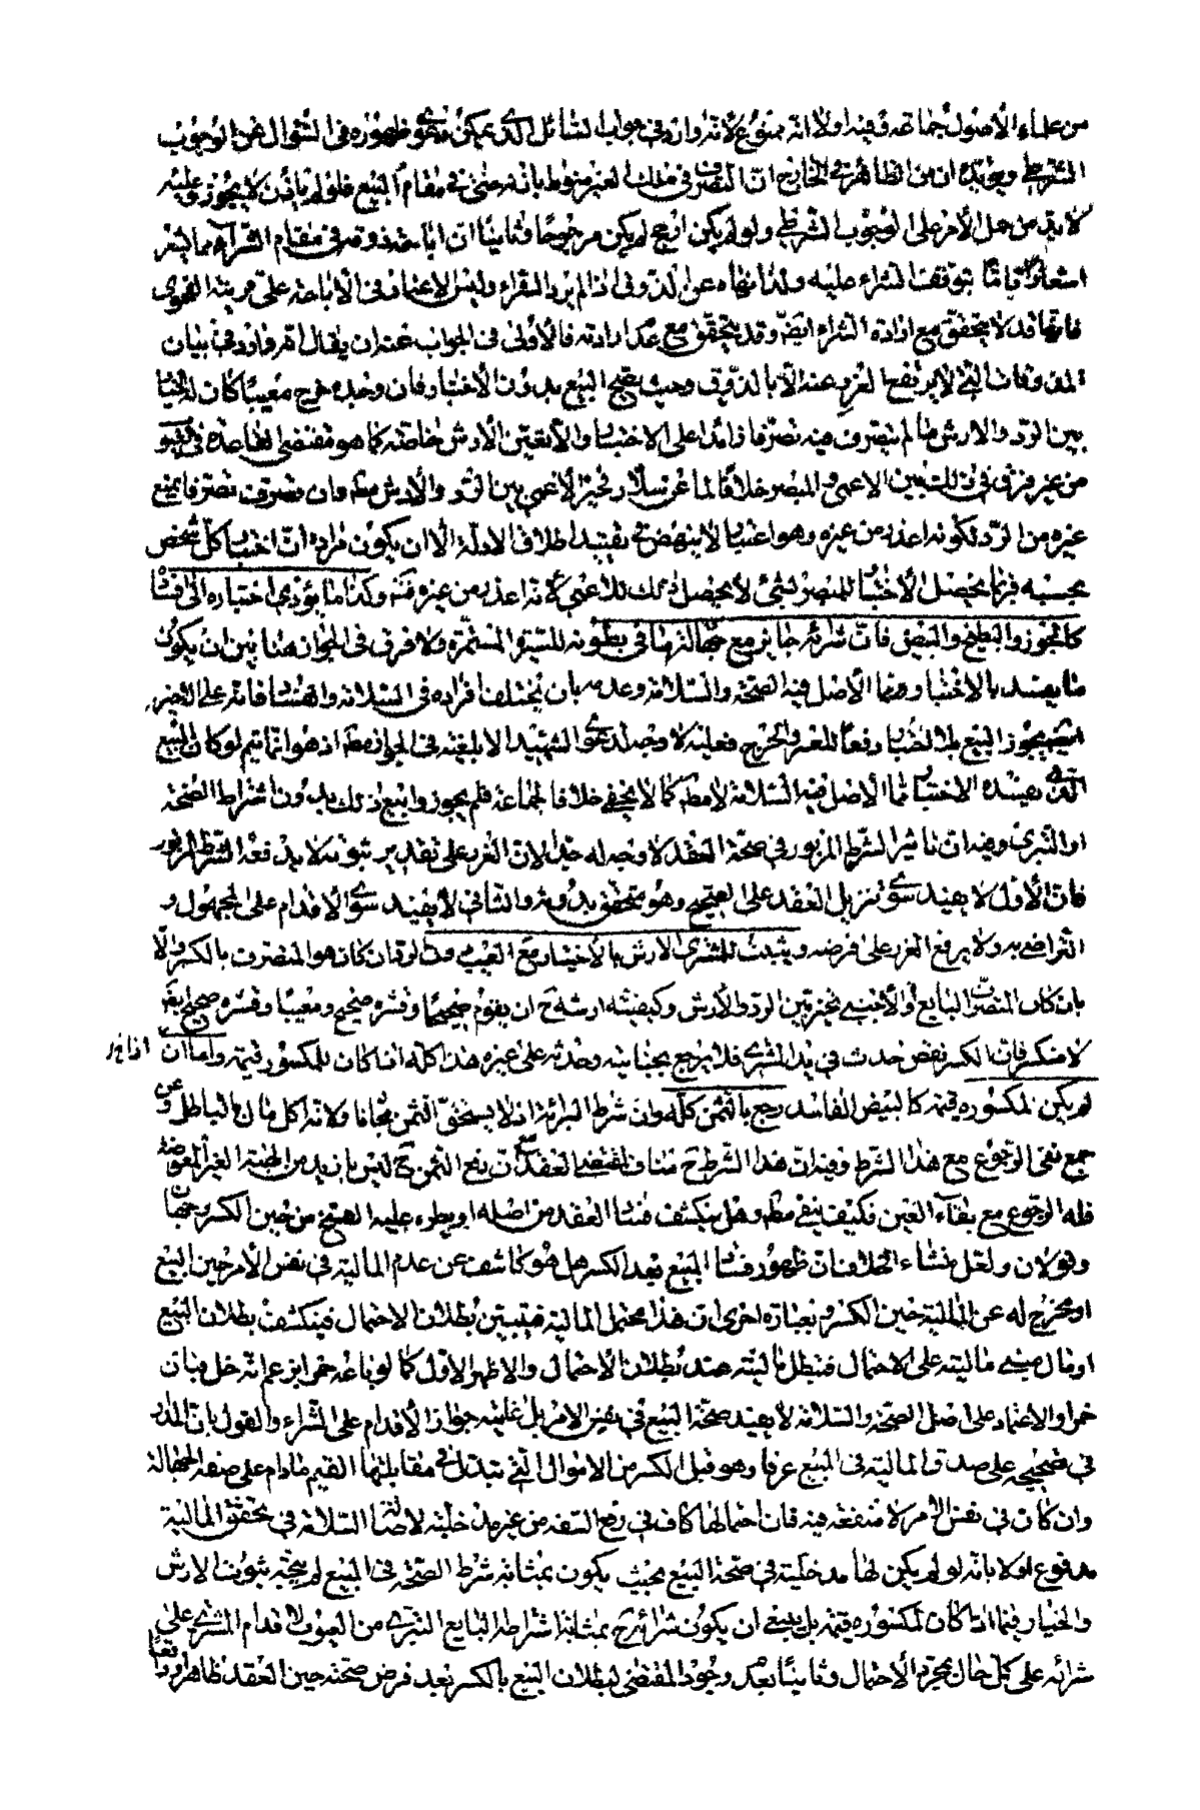 من علماء الأصول جماعة وفيه اولا انه ممنوع لانه وارد في جواب السائل الذي يمكن دعوى ظهوره في السؤال عن الوجوب
الشرطي ويؤيده ان من الظاهر في الخارج ان التصرف في ملك الغير منوط باذنه حتى في مقام البيع فلو لم ياذن لا يجوز وعليه
لا بد من حمل الأمر على الوجوب الشرطي ولو لم يكن ارجح لم يكن مرجوحا وثانيا ان اباحة ذوقه في مقام الشراء مما يشعر
اشعارا تاما بتوقف الشراء عليه ولذا نهاه عن الذوق اذا لم يرد الشراء وليس الاعتماد في الأباحة على قرينة الفحوى
فانها قد لا يتحقق مع ارادة الشراء ايضا وقد يتحقق مع عدم ارادته فالأولى في الجواب عنه ان يقال انه وارد في بيان
المذوقات التي لا يرتفع الغرر عنه الا بالذوق وحيث يصح البيع بدون الأختبار فان وجده خرج معيبا كان له الخيار
بين الرد والارش ما لم يتصرف فيه تصرفا زائدا على الاختبار والا تعين الأرش خاصة كما هو مقتضى القاعدة في العيوب
من غير فرق في ذلك بين الاعمى والمبصر خلافا لما عن سلار فخير الأعمى بين الرد والأرش مطم وان تصرف تصرفا يمنع
غيره من الرد لكونه اعذر من غيره وهو اعتبار لا ينهض في تقييد اطلاق الادلة الا ان يكون مراده ان اختبار كل شخص
بحسبه فربما يحصل الأختبار للمبصر بشئ لا يحصل ذلك للأعمى لانه اعذر من غيره فتم وكذا ما يؤدي اختباره الى فساده
كالجوز والبطيخ والبيض فان شرائه جايز مع جهالة ما في بطونه للسيرة المستمرة ولا فرق في الجواز هنا بين ان يكون
ما يفسد بالاختبار مما الأصل فيه الصحة والسلامة وعدمه بان يختلف افراده في السلامة والفساد فانه على الاخير
ايضا يجوز البيع بلا اختبار دفعا للعسر والحرج فعليه لا وجه لدعوى الشهيد الابلغية في الجواز مطم اذ هو انما يتم لو كان المبيع
الذي يفسده الاختبار مما الاصل فيه السلامة لا مطم كما لا يخفى خلافا لجماعة فلم يجوزوا بيع ذلك بدون اشتراط الصحة
او التبري وفيه ان تاثير الشرط المزبور في صحة العقد لا وجه له جدا لان الغرر على تقدير ثبوته لا يدفعه الشرط المزبور
فان الأول لا يفيد سوى تنزيل العقد على الصحيح وهو متحقق بدونه والثاني لا يفيد سوى الأقدام على المجهول و
التراضي به ولا يرفع الغرر على فرضه ويثبت للمشتري الارش بالأختيار مع العيب دون الرد ان كان هو المتصرف بالكسر والا
بان كان المتصرف البايع او الأجنبي تخير بين الرد والأرش وكيفيته ارشه ح ان يقوم صحيحا وقشره صحيح ومعيبا وقشره صحيح ايضا
لا منكسر فان الكسر نقص حدث في يد المشتري فلا يرجع بجنايته وحدثه على غيره هذا كله اذا كان للمكسور قيمة واما ان اذا لم
لم يكن لمكسوره قيمة كالبيض الفاسد رجع بالثمن كله وان شرط البرائة اذ لا يستحق الثمن مجانا ولانه اكل مال بالباطل وعن
جمع نفي الرجوع مع هذا الشرط وفيه ان هذا الشرط ح مناف لمقتضى العقد مع ان دفع الثمن ح ليس بازيد من الهبة الغير المعوضة
فله الرجوع مع بقاء العين فكيف ينفى مطم وهل ينكشف فساد العقد من اصله او يطرء عليه الفسخ من حين الكسر وجهان
وقولان ولعل منشاء الخلاف ان ظهور فساد المبيع بعد الكسر هل هو كاشف عن عدم المالية في نفس الأمر حين البيع
او مخرج له عن المالية حين الكسر وبعبارة اخرى ان هذا محتمل المالية فيتبين بطلان الاحتمال فينكشف بطلان البيع
او مال مبني ماليته على الاحتمال فتبطل ماليته عند بطلان الأحتمال والاظهر الأول كما لو باعه خمرا بزعم انه خل فبان
خمرا والاعتماد على اصل الصحة والسلامة لا يفيد صحة البيع في نفس الامر بل غايته جواز الأقدام على الشراء والقول بان المدار
في تصحيحه على صدق المالية في المبيع عرفا وهو قبل الكسر من الاموال التي تبذل في مقابلتها القيم مادام على صفة الجهالة
وان كان في نفس الأمر لا منفعة فيه فان احتمالها كاف في رفع السفه من غير مدخلية لاصالة السلامة في تحقق المالية
مدفوع اولا بانه لو لم يكن لها مدخلية في صحة البيع بحيث يكون بمثابة شرط الصحة في المبيع لم يتجه ثبوت الارش
والخيار فيما اذا كان لمكسوره قيمة بل ينبغي ان يكون شرائه ح بمثابة اشتراط البايع التبري من العيوب لاقدام المشتري على
شرائه على كل حال بمجرد الأحتمال وثانيا بعدم وجود المقتضى لبطلان البيع بالكسر بعد فرض صحته حين العقد ظاهرا وواقعا